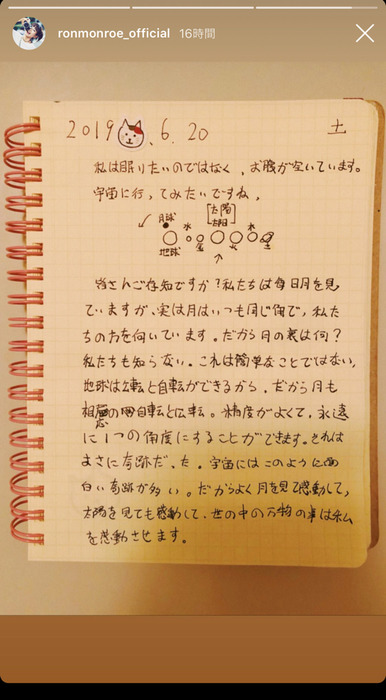 ronmonroe_official 16時間
2019 .6.20 土
私は眠りたいのではなく、お腹が空いています。
宇宙に行ってみたいですね、
月球 水 [太陽] 水
地球 金 火 土
皆さんご存知ですか?私たちは毎日月を見
ていますが、実は月はいつも同じ角で、私た
ちの方を向いています。だから月の裏は何?
私たちも知らない。これは簡単なことではない、
地球は公転と自転ができるから、だから月も
相應の自転と公転。精度がよくて、永遠
に1つの角度にすることができます。それは
まさに奇跡だ、た。宇宙にはこのように面
白い奇跡が多い。だからよく月を見て感動して、
太陽を見ても感動して、世の中の万物の事は私
を感動させます。